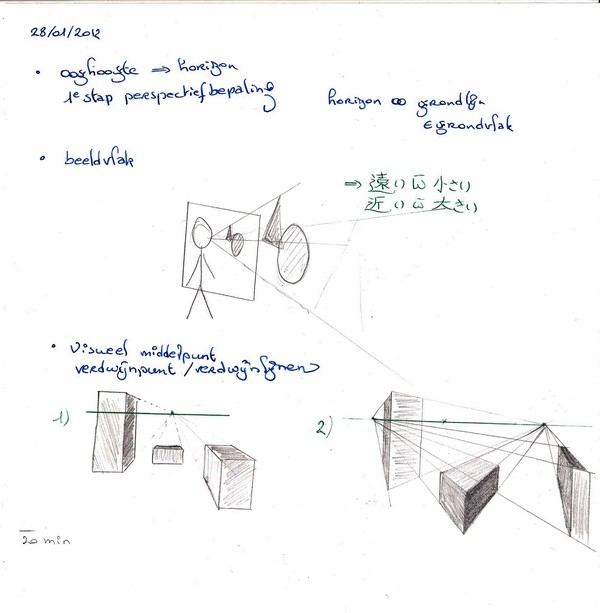 28/01/2012
• ooghoogte ⇒ horizon
1e stap perspectiefbepaling
horizon ∞ grondlijn
∈ grondvlak
• beeldvlak
⇒ 遠い 小さい
近い 大きい
• Visueel middelpunt
verdwijnpunt / verdwijnlijnen
1)
2)
20 min